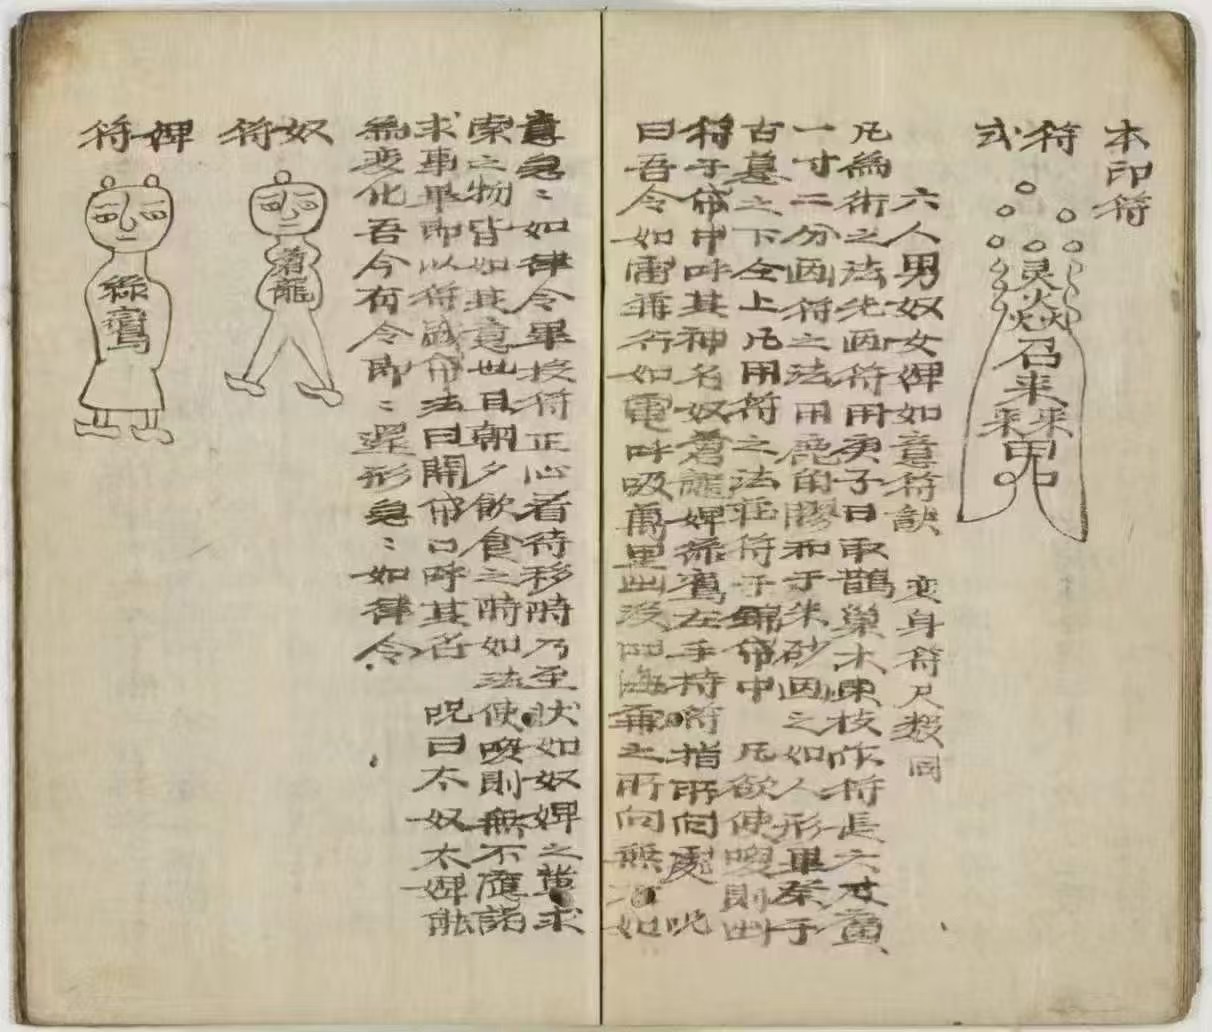 本印符
符式
灵焱召来来来鬼
六人男奴女婢如意符訣 变身符尺数同
凡為術之法先画符用庚子日取鵲巢木東枝作符長六寸
一寸二分画符之法用鹿角膠和于朱砂画之如人形畢祭于
古墓之下全上凡用符之法莊符于錦帒中 凡欲使喚則出
符于帒中呼其神名奴蒼龍婢綠鸞左手持符指所向處 呪
曰吾令如雷奔行如電呼吸萬里出没四海 之所向無不如
意急〻如律令畢投符正心看待移時乃至狀如奴婢之 求
索之物皆如其意也且朝夕飲食之時如法使喚則無不應諾
求車畢即以符盛帒法曰開帒口呼其名 呪曰太奴太婢能
為变化吾今有令即〻還形急〻如律令
奴符
蒼龍
婢符
綠鸞